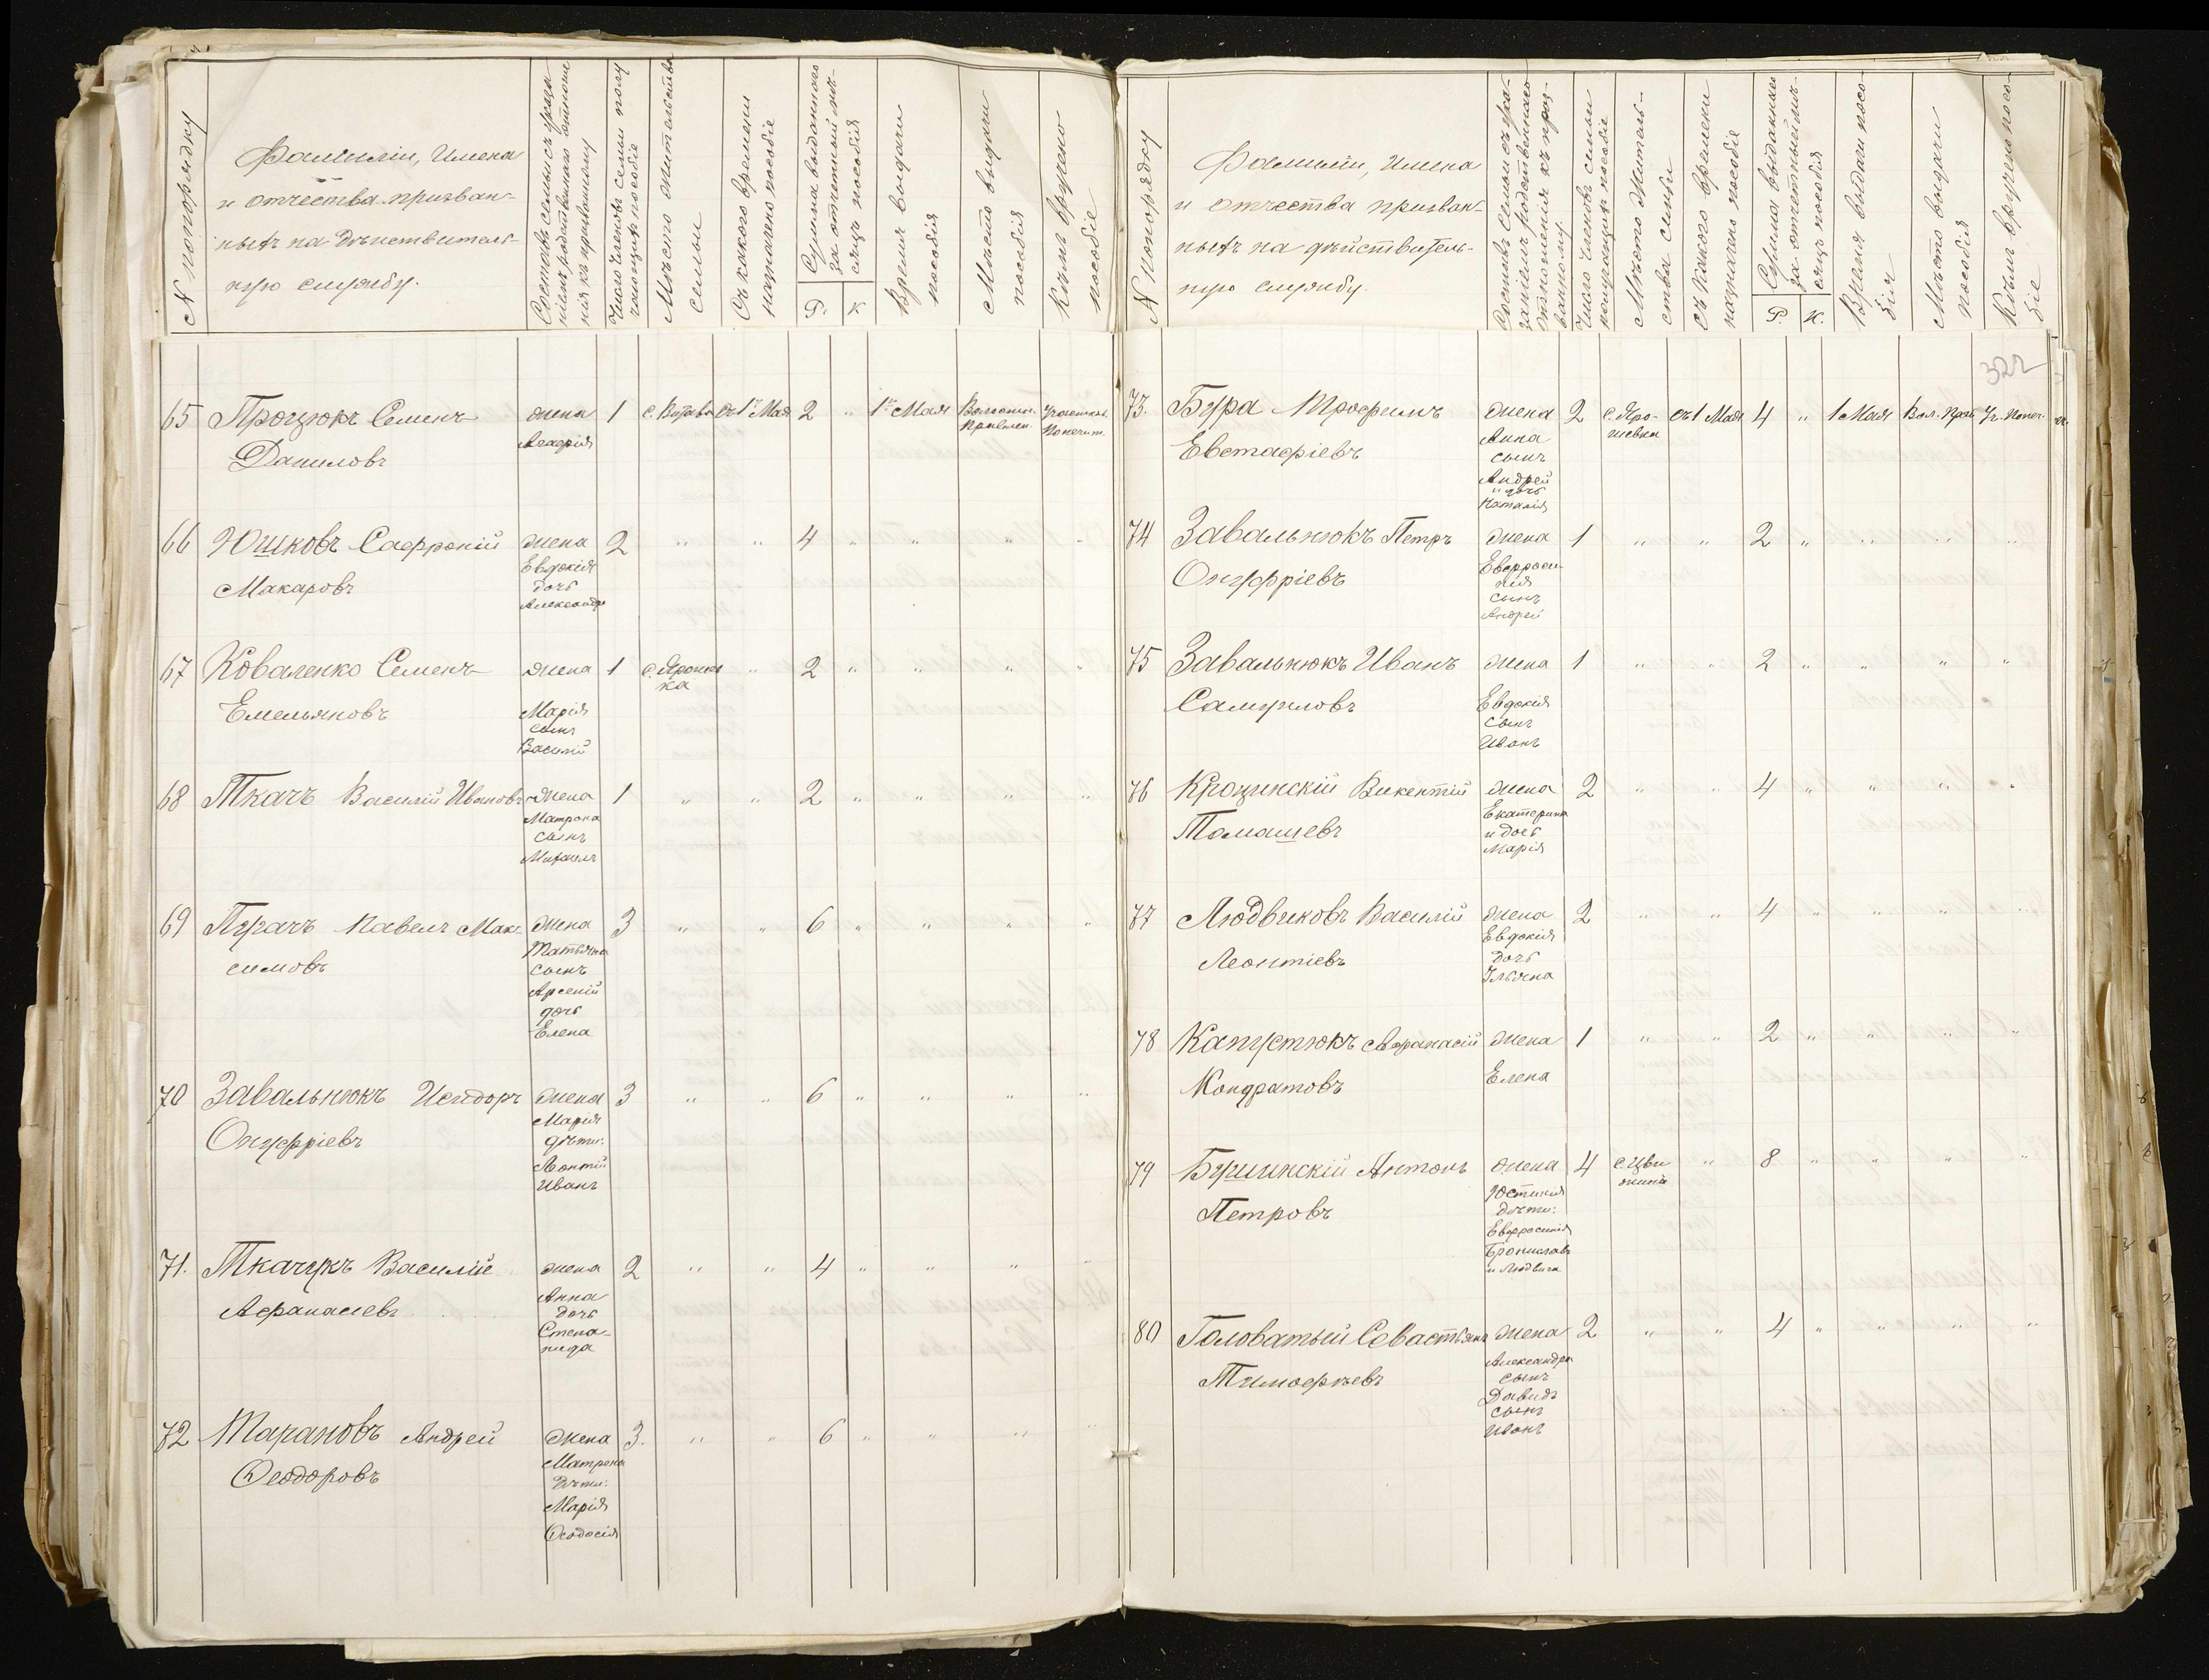 № попорядку
Фамиліи, Имена
и отчества призван-
ныхъ на дѣйствитель-
ную службу.
Составъ семьи съ указа-
ніемъ родственнаго отноше
нія къ призванному
Число членовъ семьи полу
чающихъ пособіе
Мѣсто жительства
семьи
Съ какого времени
назначено пособіе
Сумма выданнаго
за отчетный мѣ-
сяцъ пособія
Р. К.
Время выдачи
пособія
Мѣсто выдачи
пособія
Кѣмъ вручено
пособіе
65 Процюкъ Семенъ жена 1 с. съ 1го Мая 2 " 1го Мая Волостн. Участков.
Даниловъ Правлен. Попечит.
66 Юшковъ Сафроній жена 2 " " 4 " " " "
Макаровъ Евдокія
дочь
Александра
67 Коваленко Семенъ жена 1 " 2 " " " "
Емельяновъ Марія
сынъ
Василій
68 Ткачъ Василій Ивановъ жена 1 " " 2 " " " "
Матрона
сынъ
Михаилъ
69 Павелъ Мак- жена 3 " " 6 " " " "
симовъ Татьяна
сынъ
Арсеній
дочь
Елена
70 Завальнюкъ Исидоръ жена 3 " " 6 " " " "
Онуфріевъ Марія
дѣти:
Леонтій
Иванъ
71. Ткачукъ Василій жена 2 " " 4 " " " "
Афанасіевъ Анна
дочь
Степа-
нида
72 Тарановъ Андрей жена 3. " " 6 " " " "
Ѳеодоровъ Матрена
дѣти:
Марія
Ѳеодосія
322
№ попорядку
Фамиліи, Имена
и отчества призван-
ныхъ на дѣйствитель-
ную службу.
Составъ семьи съ ука-
заніемъ родственнаго
отношенія къ приз-
ванному
Число членовъ семьи
получающихъ пособіе
Мѣсто житель-
ства семьи
Съ какого времени
назначено пособіе
Сумма выданнаго
за отчетный мѣ-
сяцъ пособія
Р. К.
Время выдачи посо-
бія
Мѣсто выдачи
пособія
Кѣмъ вручено посо-
біе
73. Бура Трофимъ жена 2 съ 1 Мая 4 " 1 Мая Вол. Прав. Уч. Попеч.
Евстафіевъ Анна
сынъ
Андрей
и дочь
Наталія
74 Завальнюкъ Петръ жена 1 " " 2 " " " "
Онуфріевъ Евфроси-
нія
сынъ
Андрей
75 Завальнюкъ Иванъ жена 1 " " 2 " " " "
Самуиловъ Евдокія
сынъ
Иванъ
76 Кроцинскій Викентій жена 2 " " 4 " " " "
Томашевъ Екатерина
и дочь
Марія
77 Людвиковъ Василій жена 2 " " 4 " " " "
Леонтіевъ Евдокія
дочь
78 Капустюкъ Афанасій жена 1 " " 2 " " " "
Кондратовъ Елена
79 Бушинскій Антонъ жена 4 " 8 " " " "
Петровъ Юстинія
дѣти:
Евфросинія
Брониславъ
и Людвига
80 Головатый Севастьянъ жена 2 " " 4 " " " "
Тимофѣевъ Александра
сынъ
Давидъ
сынъ
Иванъ